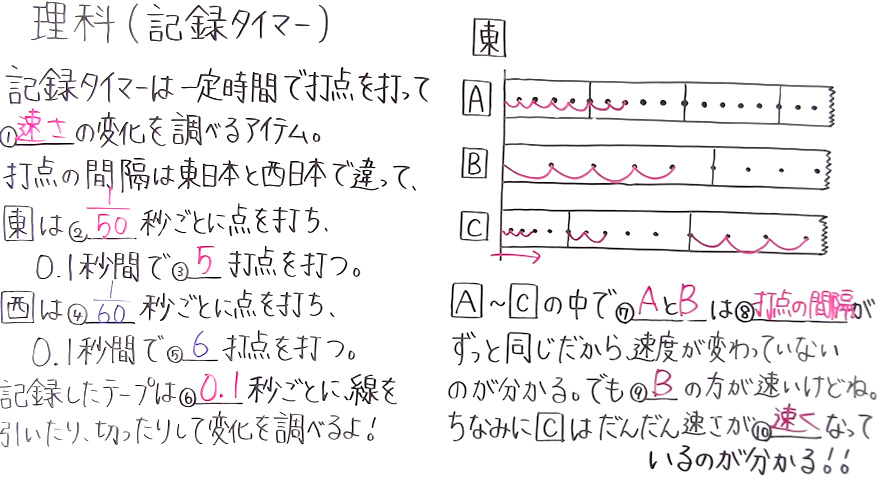 理科(記録タイマー)
記録タイマーは一定時間で打点を打って
①速さの変化を調べるアイテム。
打点の間隔は東日本と西日本で違って、
東は②1/50秒ごとに点を打ち、
0.1秒間で③5打点を打つ。
西は④1/60秒ごとに点を打ち、
0.1秒間で⑤6打点を打つ。
記録したテープは⑥0.1秒ごとに、線を
引いたり、切ったりして変化を調べるよ!
東
A
B
C
A~Cの中で⑦AとBは⑧打点の間隔が
ずっと同じだから、速度が変わっていない
のが分かる。でも⑨Bの方が速いけどね。
ちなみにCはだんだん速さが⑩速くなって
いるのが分かる!!